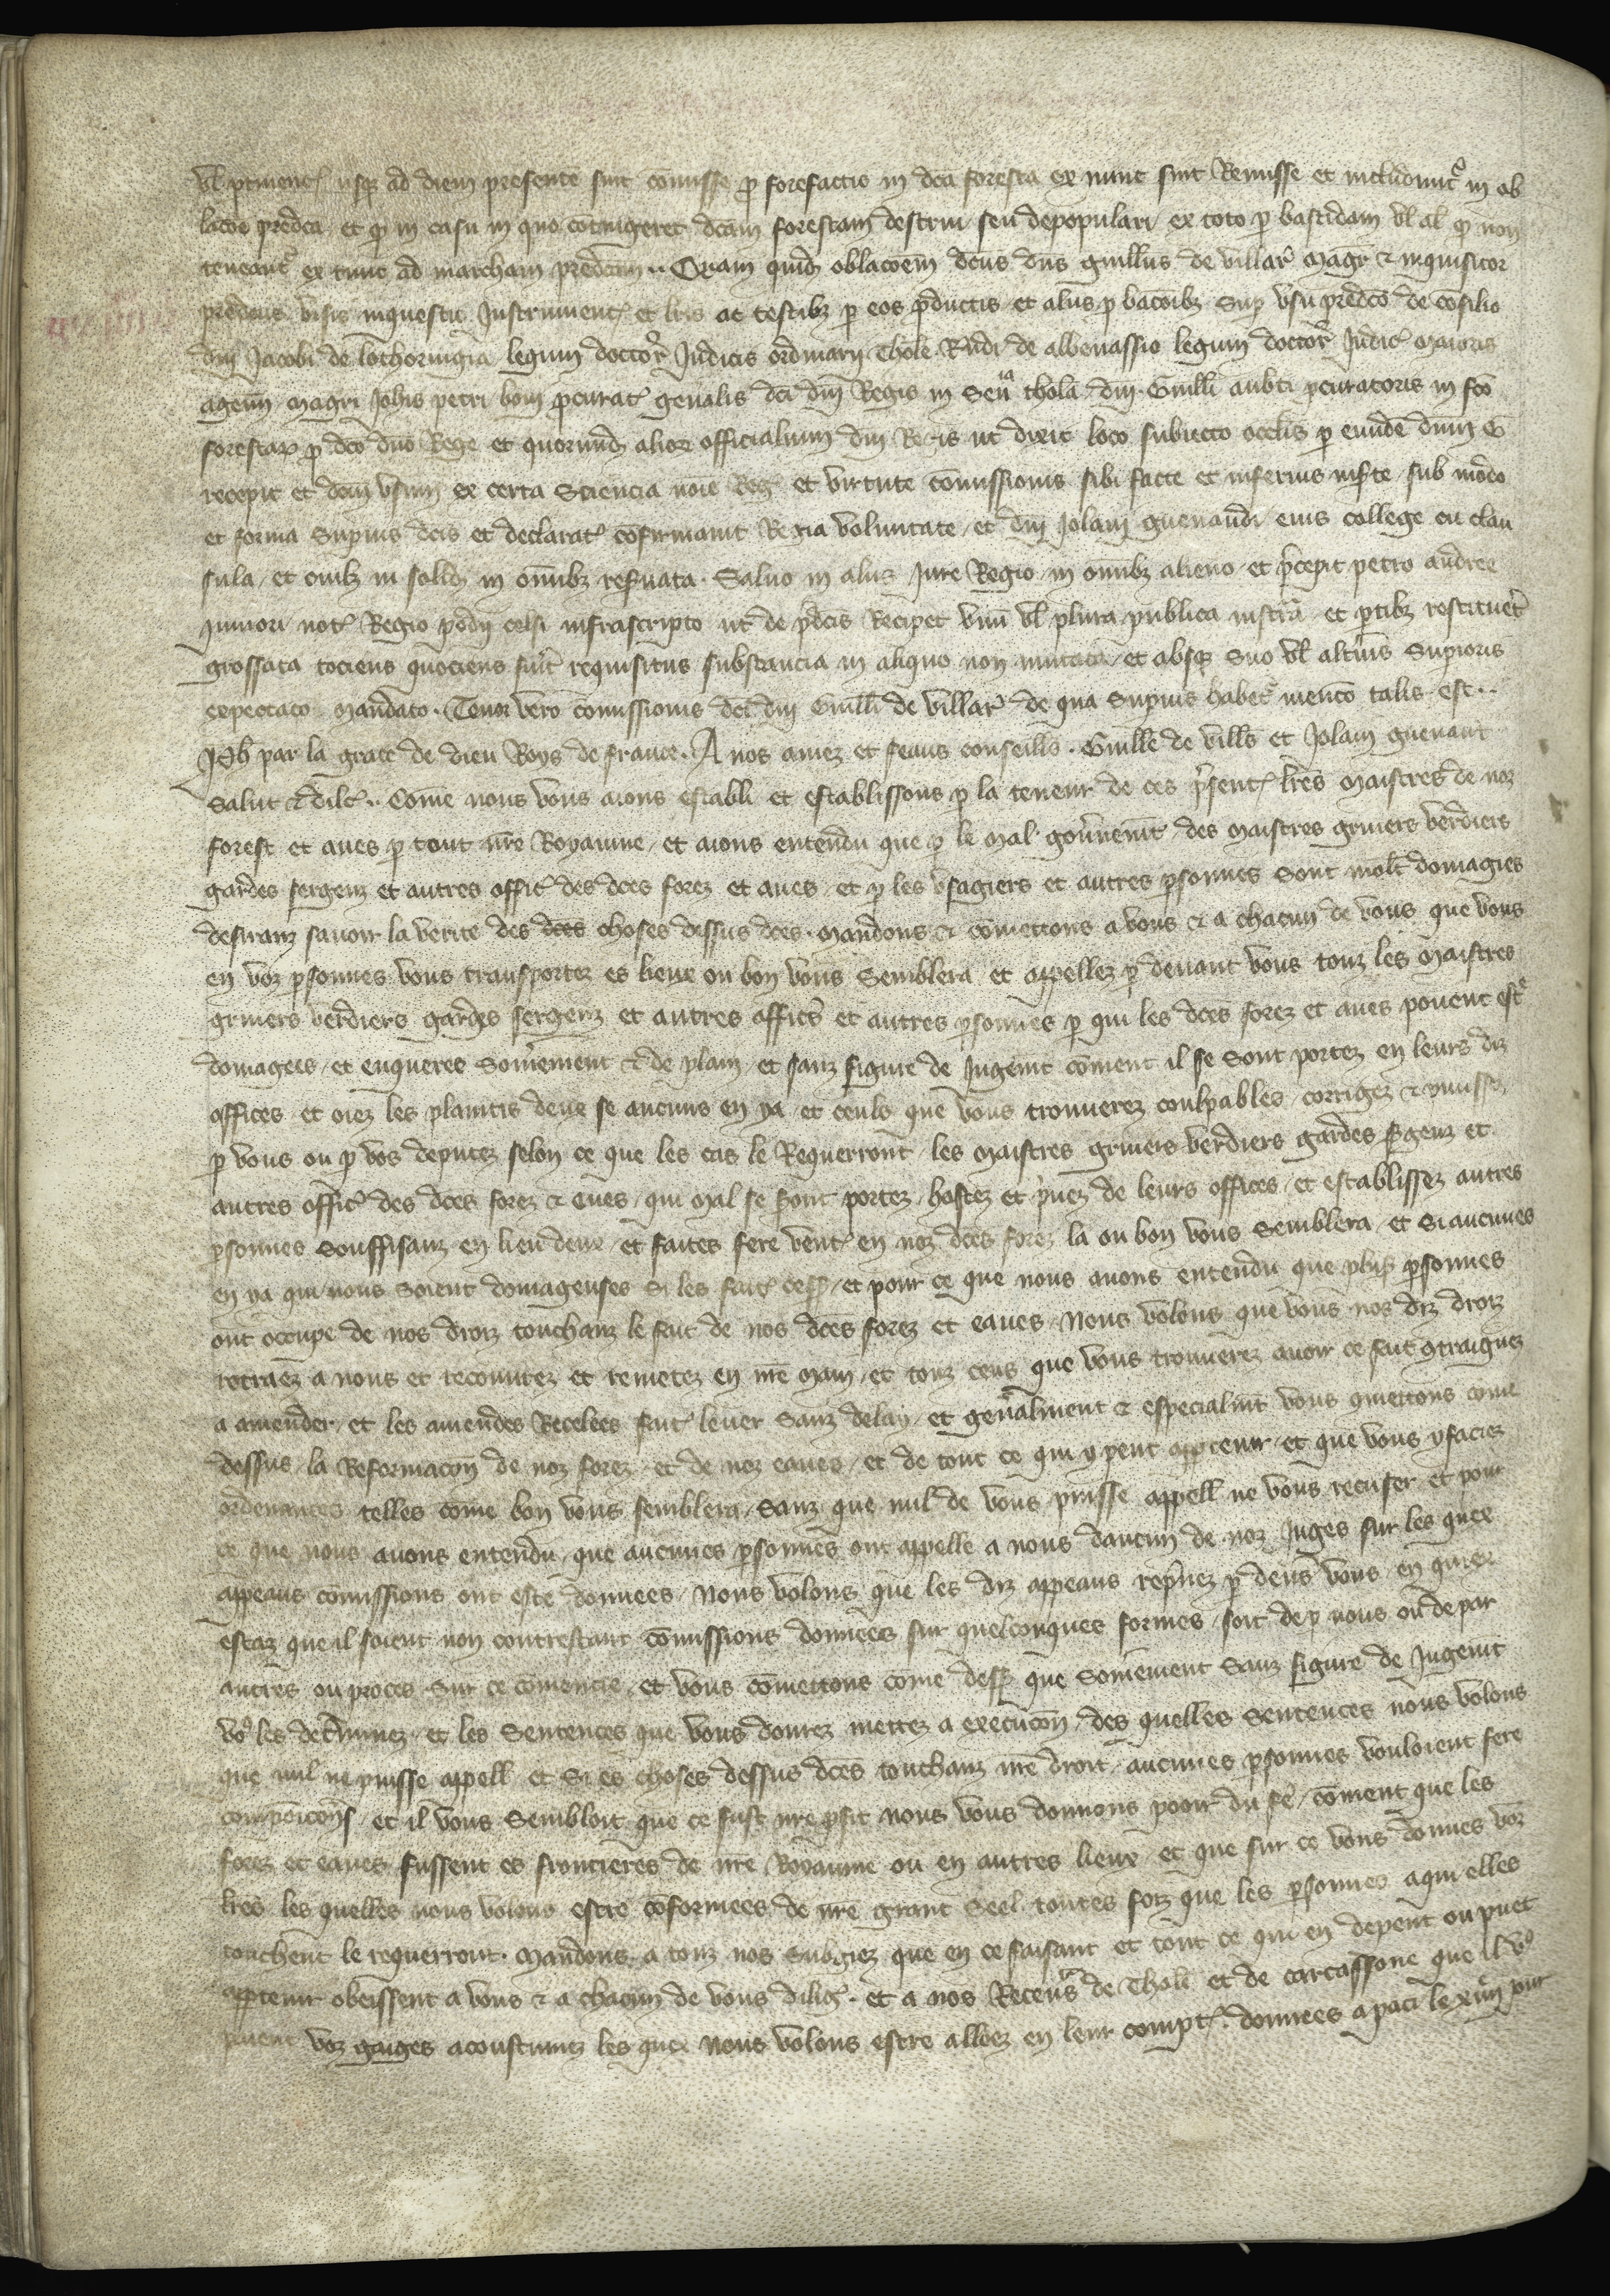 vl ptinent usqz ad diem presente sint comisse p forefactio in dca foresta ex nunc sint Remisse et includunt in ob
lacoe predca et q in casu in quo cotingeret dcam forestam destrui seu depopulari ex toto p bastidam vl al q non
teneant ex tunc ad marcham predcam .. Quam quid oblacoem dcus dns guillus de villar magr & inquisitor
predcus visis inquestis Instrument et lris ac testibz p eos productis et aliis pbacoibz sup vsu predco de cosilio
dni Jacobi de lothoringia legum doctor Judicis ordinarii Thole Rndi de albenassio legum doctor Judic maioris
agenn magri Johis petri boni pcurat genalis dci dni Regis in Sen thola dni Guilli aubti pcuratoris in fco
forestar p dco dno Rege et quorund alior officialium dni Regis ut dixit loco subiecto oclis p eunde dnm G
recepit et dcm vsum ex certa Sciencia noie Reg et virtute comissionis sibi facte et inferius inserte sub modo
et forma Supius dcis et declarat cofirmauit Regia voluntate et dni Jolani guenandi eius college cu clau
sula et omibz in solid in omibz reseruata . Saluo in aliis Jure Regio in omibz alieno et pcepit petro andree
Juniori not Regio podii celsi infrascripto ut de pdcis Recipet vnu vl plura publica instra et ptibz restituet
grossata tociens quociens fuit requisitus substancia in aliquo non mutata et absqz suo vl altius Supioris
expectato mandato . Tenor vero comissionis dci dni Guilli de villar de qua Supius habet mencio talis est ..
Joh par la grace de dieu Roys de france . A nos amez et feaus conseills . Guille de vills et Jolain guenant
Salut & dilc .. Come nous vous aions establi et establissons p la teneur de ces psent lres maistres de noz
forest et aues p tout nre Royaume et aions entendu que p le mal gouuneint des maistres gruiers verdiers
gardes sergenz et autres offic des dces forez et aues et p les vsagiers et autres psonnes sont molt domagies
desiranz sauoir la verite des dces choses dessus dces . mandons & comettons a vous & a chacun de vous que vous
en voz psonnes vous transportez es lieux ou bon vous Semblera et appellez p deuant vous touz les maistres
gruiers verdiers gardes sergenz et autres offics et autres psonnes p qui les dces forez et aues pouent est
domages et enqueres somement & de plain et sanz figure de Jugemt coment il se sont portez en leurs diz
offices et oiez les plaintis deux se aucuns en ya et ceuls que vous trouuerez coulpables corrigez & punissez
p vous ou p vos deputez selon ce que les cas le Requerront les maistres gruiers verdiers gardes sgenz et
autres offic des dces forez & eues qui mal se sont portez hostez et puez de leurs offices et establissez autres
psonnes souffisanz en lieu deux et faites fere vent en noz dces forez la ou bon vous semblera et si aucunes
en ya qui nous soient domageuses si les fait cess et pour ce que nous auons entendu que plus psonnes
ont occupe de nos droiz touchanz le fait de nos dces forez et eaues Nous volons que vous nos diz droiz
retraez a nous et recouurez et remetez en nre main et touz ceus que vous trouuerez auoir ce fait gtraignez
a amender et les amendes Recelees fait leuer sanz delay et genalment & especialmt vous gmettons come
dessus la Reformacon de noz forez et de noz eaues et de tout ce qui y peut apptenir et que vous y faciez
ordenances telles come bon vous semblera sanz que nul de vous puisse appell ne vous recuser et pour
ce que nous auons entendu que aucunes psonnes ont appelle a nous daucun de noz Juges sur les quex
appeaus comissions ont este donnees Nous volons que les diz appeaus repnez p deus vous en quiex
estaz que il soient non contrestant comissions donnees sur quelconques formes soit de p nous ou de par
autres ou proces sur ce comencie et vous comettons come dess que somement sanz figure de Jugemt
vo les detminez et les sentences que vous donrez mettez a execucon des quelles sentences nous volons
que nul ne puisse appell et si es choses dessus dces touchanz nre droit aucunes psonnes vouloient fere
compoicons et il vous sembloit que ce fust nre pfit nous vous donnons pooir du fe coment que les
forez et eaues fussent es frontieres de nre Royaume ou en autres lieux et que sur ce vous donnes voz
lres les quelles nous volons estre cofermees de nre grant Seel toutes foiz que les psonnes aqui elles
touchent le requerront . mandons a touz nos subgiez que en ce faisant et tout ce qui en depent ou puet
apptenir obeissent a vous & a chacun de vous dilig . et a nos Receus de Thole et de carcassone que il vo
paient voz gaiges acoustumez les quex nous volons estre alloez en leur compt . donnees a paci le xiiii jour